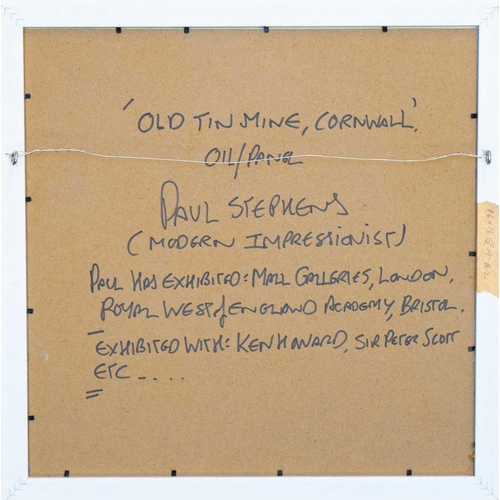 'OLD TIN MINE, CORNWALL'.
OIL/PANEL
PAUL STEPHENS
(MODERN IMPRESSIONIST)
PAUL HAS EXHIBITED: MALL GALLERIES, LONDON.
ROYAL WEST of ENGLAND ACADEMY, BRISTOL.
EXHIBITED WITH: KEN HOWARD, SIR PETER SCOTT
ETC - . . . .